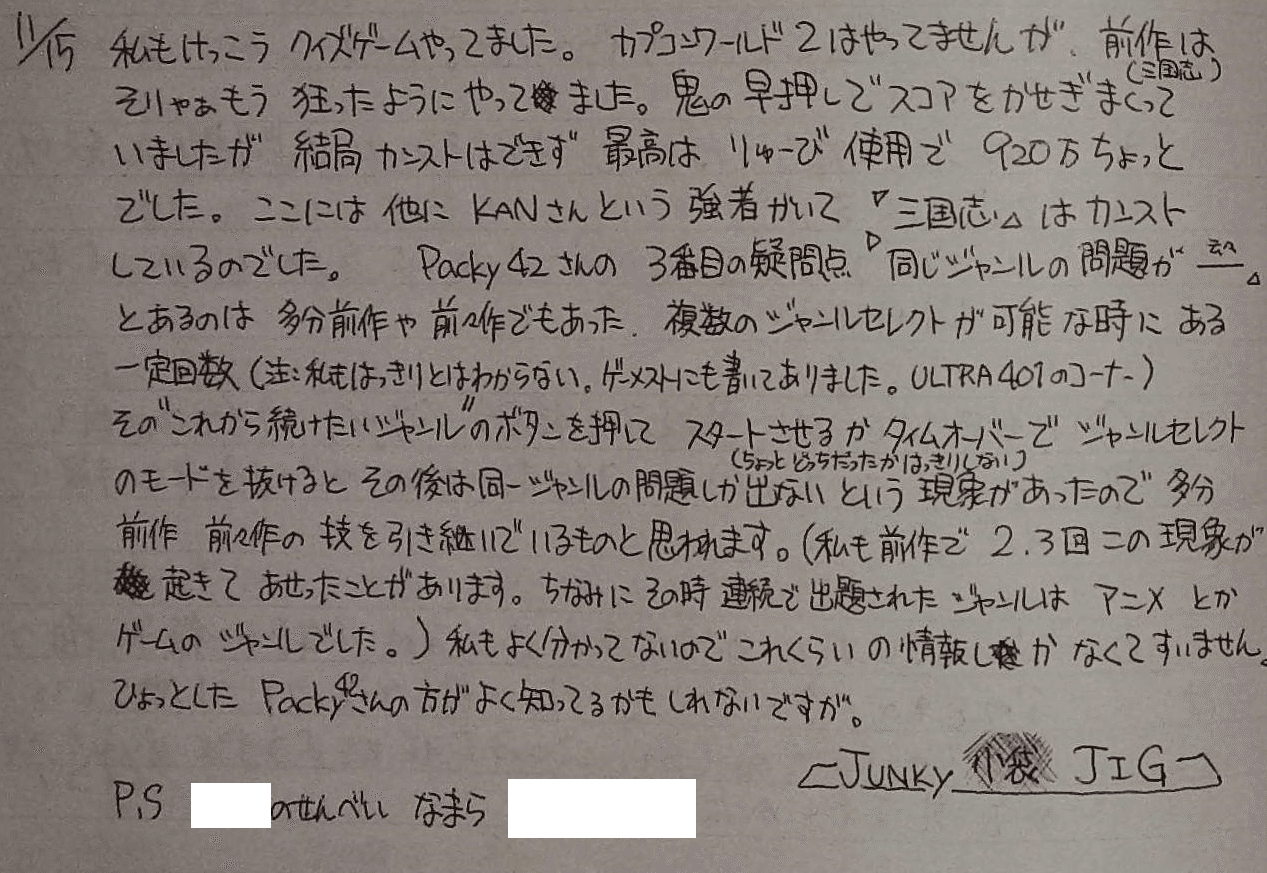 11/15 私もけっこう クイズゲームやってました。 カプコンワールド2はやってませんが、前作は
(三国志)
そりゃぁもう 狂ったようにやってました。鬼の早押しでスコアをかせぎまくって
いましたが 結局カンストはできず 最高は りゅーび使用で 920万ちょっと
でした。ここには他に KANさんという強者がいて 『三国志』はカンスト
しているのでした。 Packy42さんの 3番目の疑問点『同じジャンルの問題が 云々』
とあるのは 多分前作や前々作でもあった、複数のジャンルセレクトが可能な時に ある
一定回数(注:私もはっきりとはわからない。ゲーメストにも書いてありました。ULTRA401のコーナー)
その"これから続けたいジャンル"のボタンを押して スタートさせるか タイムオーバーで ジャンルセレクト
(ちょっとどっちだったかはっきりしない)
のモードを抜けると その後は同一ジャンルの問題しか出ない という現象があったので 多分
前作 前々作の 技を引き継いでいるものと思われます。(私も前作で 2.3回この現象が
起きて あせったことがあります。ちなみにその時 連続で出題されたジャンルは アニメ とか
ゲームの ジャンルでした。)私もよく分かってないのでこれくらいの情報しか なくてすいません。
ひょっとした Packy42さんの方がよく知ってるかもしれないですが。
JUNKY 小袋 JIG
P.S のせんべい なまら